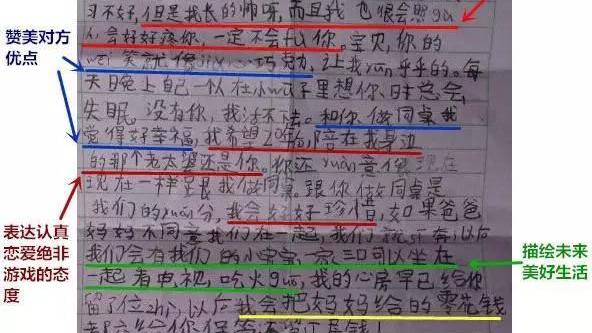 习不好,但是我长的帅呀,而且我也很会照gu
人会好好疼你,一定不会fu你。宝贝,你的
wei笑就像jiu心巧克力,让我yun乎乎的。每
天晚上自己一个人在小wu子里想你时总会
失眠。没有你,我活不下去。和你做同桌我
觉得好幸福,我希望20年陪在我身边
的那个老太婆还是你。你还yuan意像现在
现在一样至艮我做同桌。跟你做同桌是
我们的yuan分,我会好好珍惜,如果爸爸
妈妈不同意我们在一起,我们就私奔,以后
我们会有我们的小宝宝,一家三口可以坐在
一起看电视,吃火guo,我的心房早已给你
留了位zhi,以后我会把妈妈给的零花钱
都交给你保管
赞美对方
优点
表达认真
恋爱绝非
游戏的态
度
描绘未来
美好生活